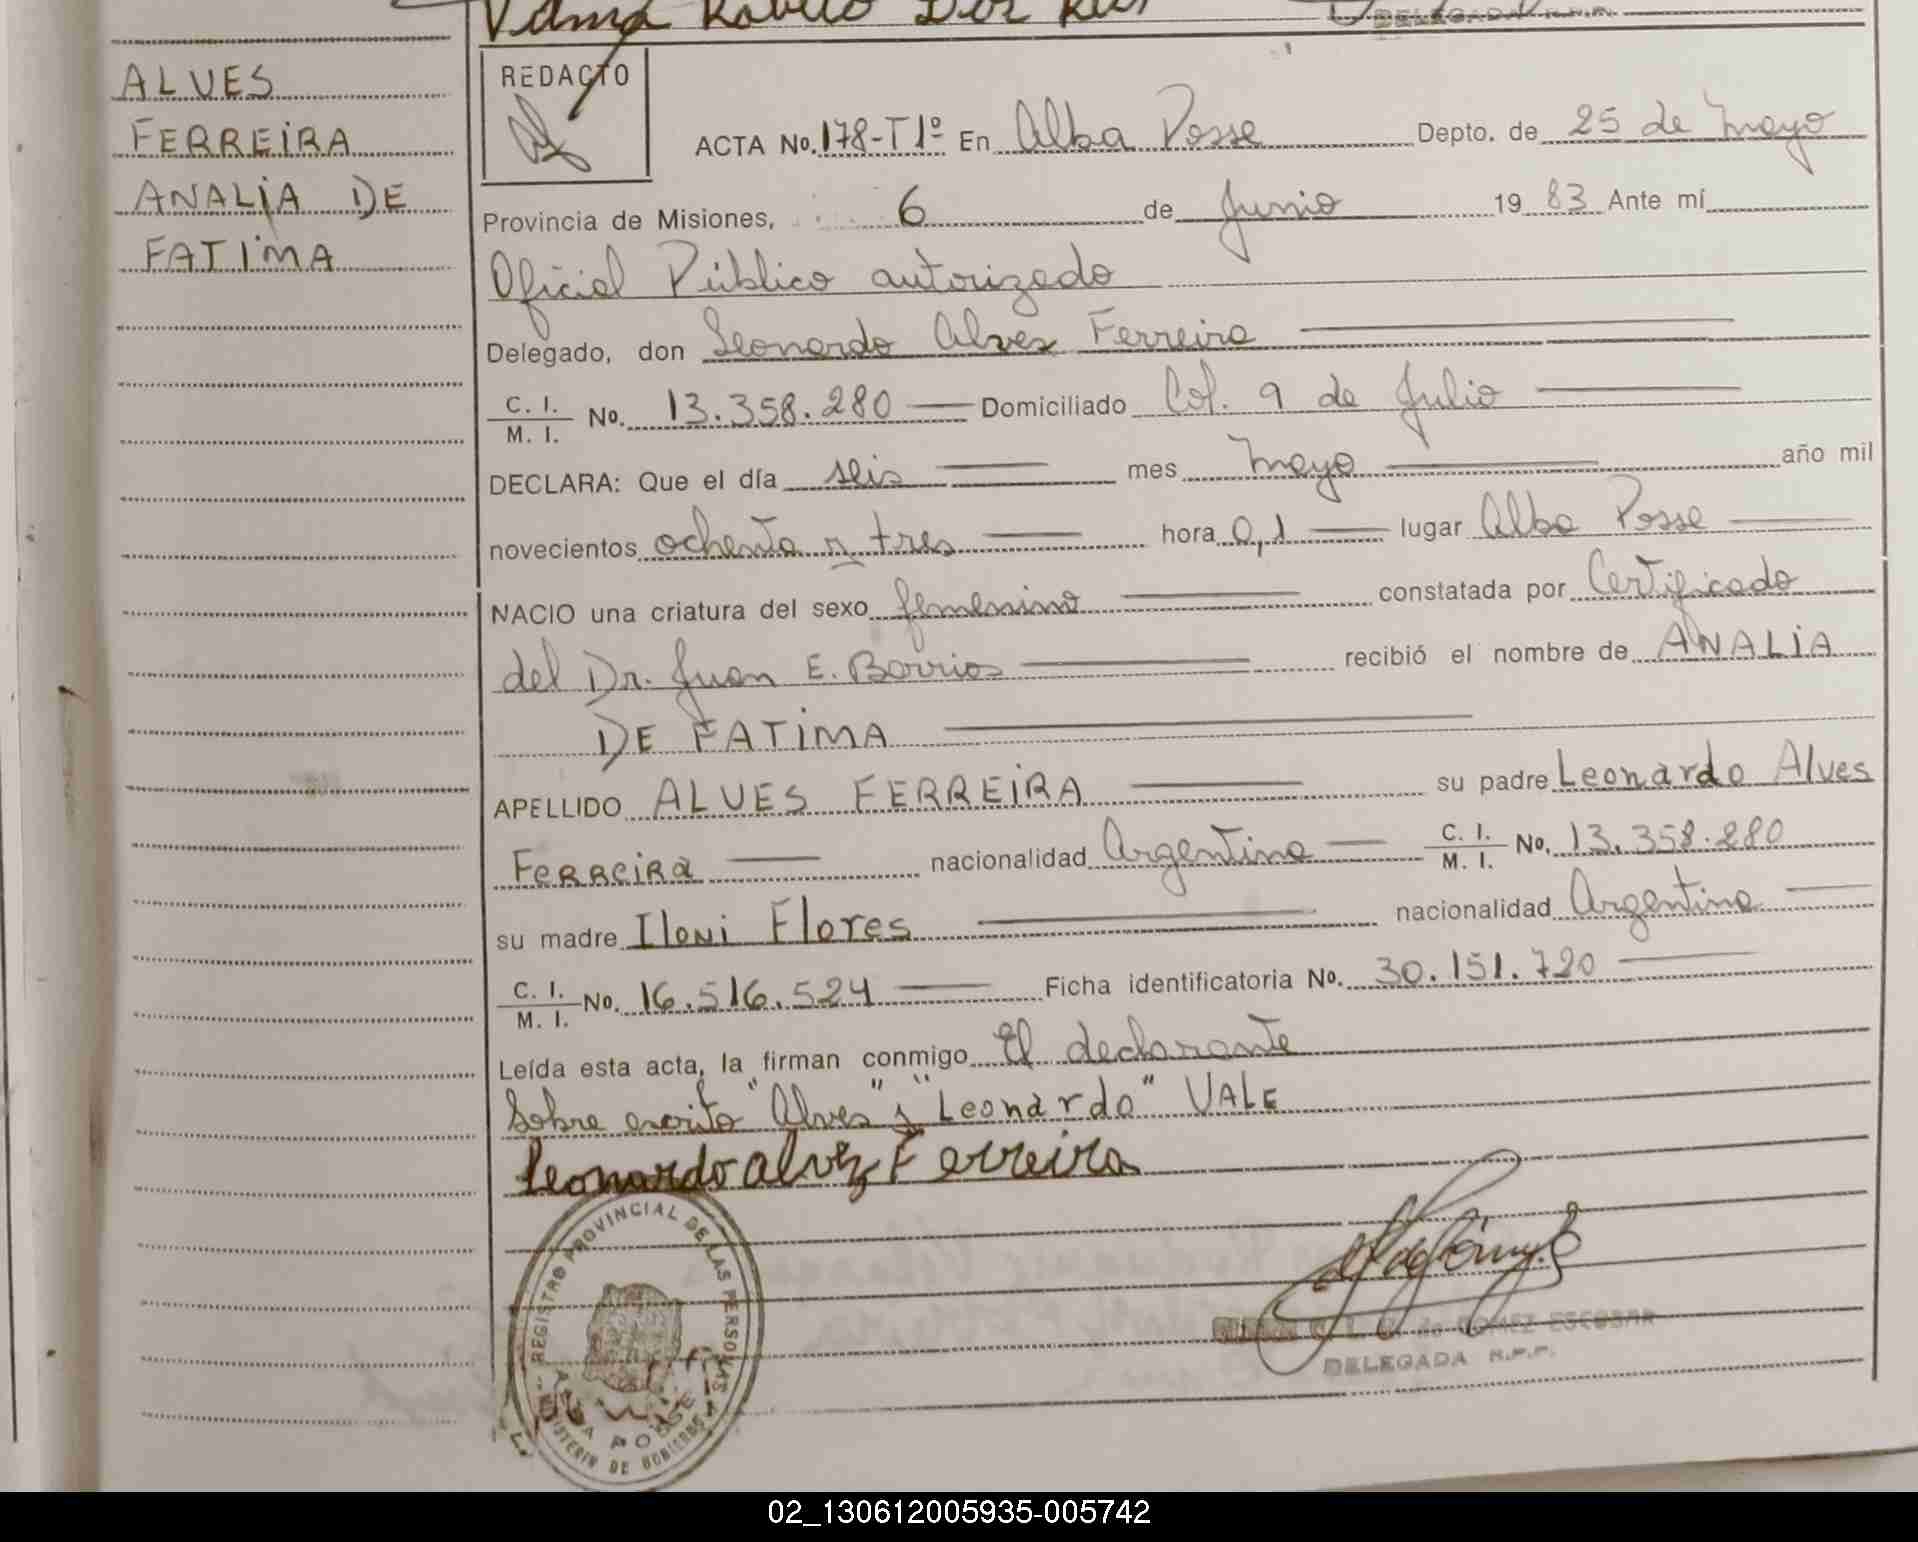 ALVES
FERREIRA
ANALIA DE
FATIMA
DELEGADA R.P.P.
REDACTO
ACTA No. 178-T1º En Alba Posse Depto. de 25 de Mayo
Provincia de Misiones, 6 de Junio 1983 Ante mí
Oficial Público autorizado
Delegado, don Leonardo Alves Ferreira
C. I. / M. I. No. 13.358.280 Domiciliado Col. 9 de Julio
DECLARA: Que el día seis mes Mayo año mil
novecientos ochenta y tres hora 0,1 lugar Alba Posse
NACIO una criatura del sexo femenino constatada por Certificado
del Dr. Juan E. Barrios recibió el nombre de ANALIA
DE FATIMA
APELLIDO ALVES FERREIRA su padre Leonardo Alves
Ferreira nacionalidad Argentina C. I. / M. I. No. 13.358.280
su madre Iloni Flores nacionalidad Argentina
C. I. / M. I. No. 16.516.524 Ficha identificatoria No. 30.151.720
Leída esta acta, la firman conmigo El declarante
Sobre escrito "Alves" y "Leonardo" VALE
Leonardo alvez Ferreira
REGISTRO PROVINCIAL DE LAS PERSONAS
ALBA POSSE
MINISTERIO DE GOBIERNO
de GOMEZ ESCOBAR
DELEGADA R.P.P.
02_130612005935-005742